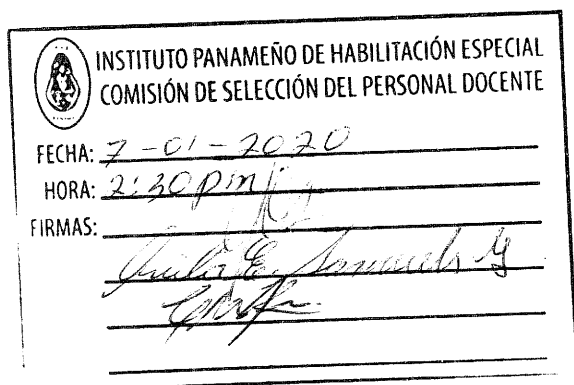 INSTITUTO PANAMEÑO DE HABILITACIÓN ESPECIAL
COMISIÓN DE SELECCIÓN DEL PERSONAL DOCENTE
FECHA: 7-01-2020
HORA: 2:30pm
FIRMAS:
E.